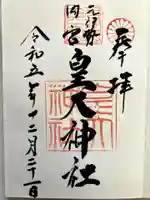 奉拝
元伊勢
内宮
皇大神社
令和五年十二月二十一日